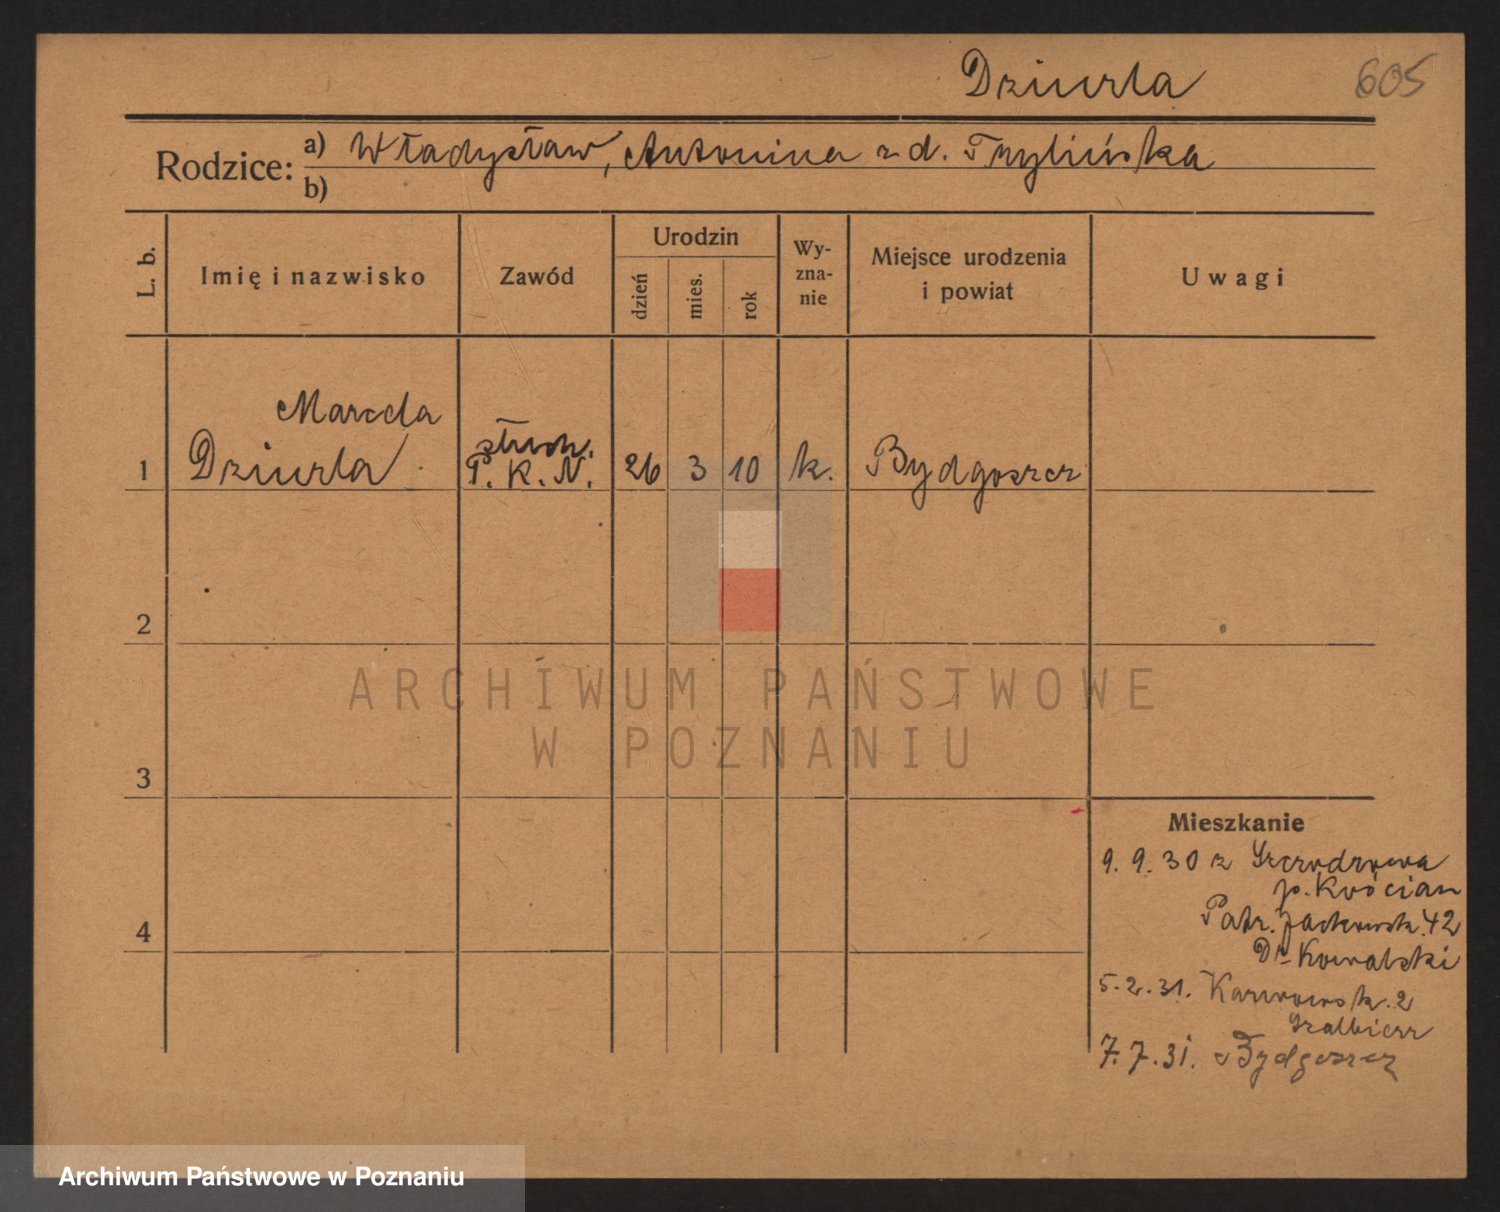 Dziurla
605
Rodzice:
a) Władysław, Antonina z d. Trylińska
b)
L. b.
Imię i nazwisko
Zawód
Urodzin
dzień
mies.
rok
Wy-
zna-
nie
Miejsce urodzenia
i powiat
Uwagi
Marcela
1 Dziurla
słuch.
P. K. N.
26 3 10 k. Bydgoszcz
2
3
4
ARCHIWUM PAŃSTWOWE
W POZNANIU
Mieszkanie
9. 9. 30 z
p. Kościan
Patr. Jackowsk. 42
Dr Kowalski
5. 2. 31. Karwowsk. 2
7. 7. 31. Bydgoszcz
Archiwum Państwowe w Poznaniu